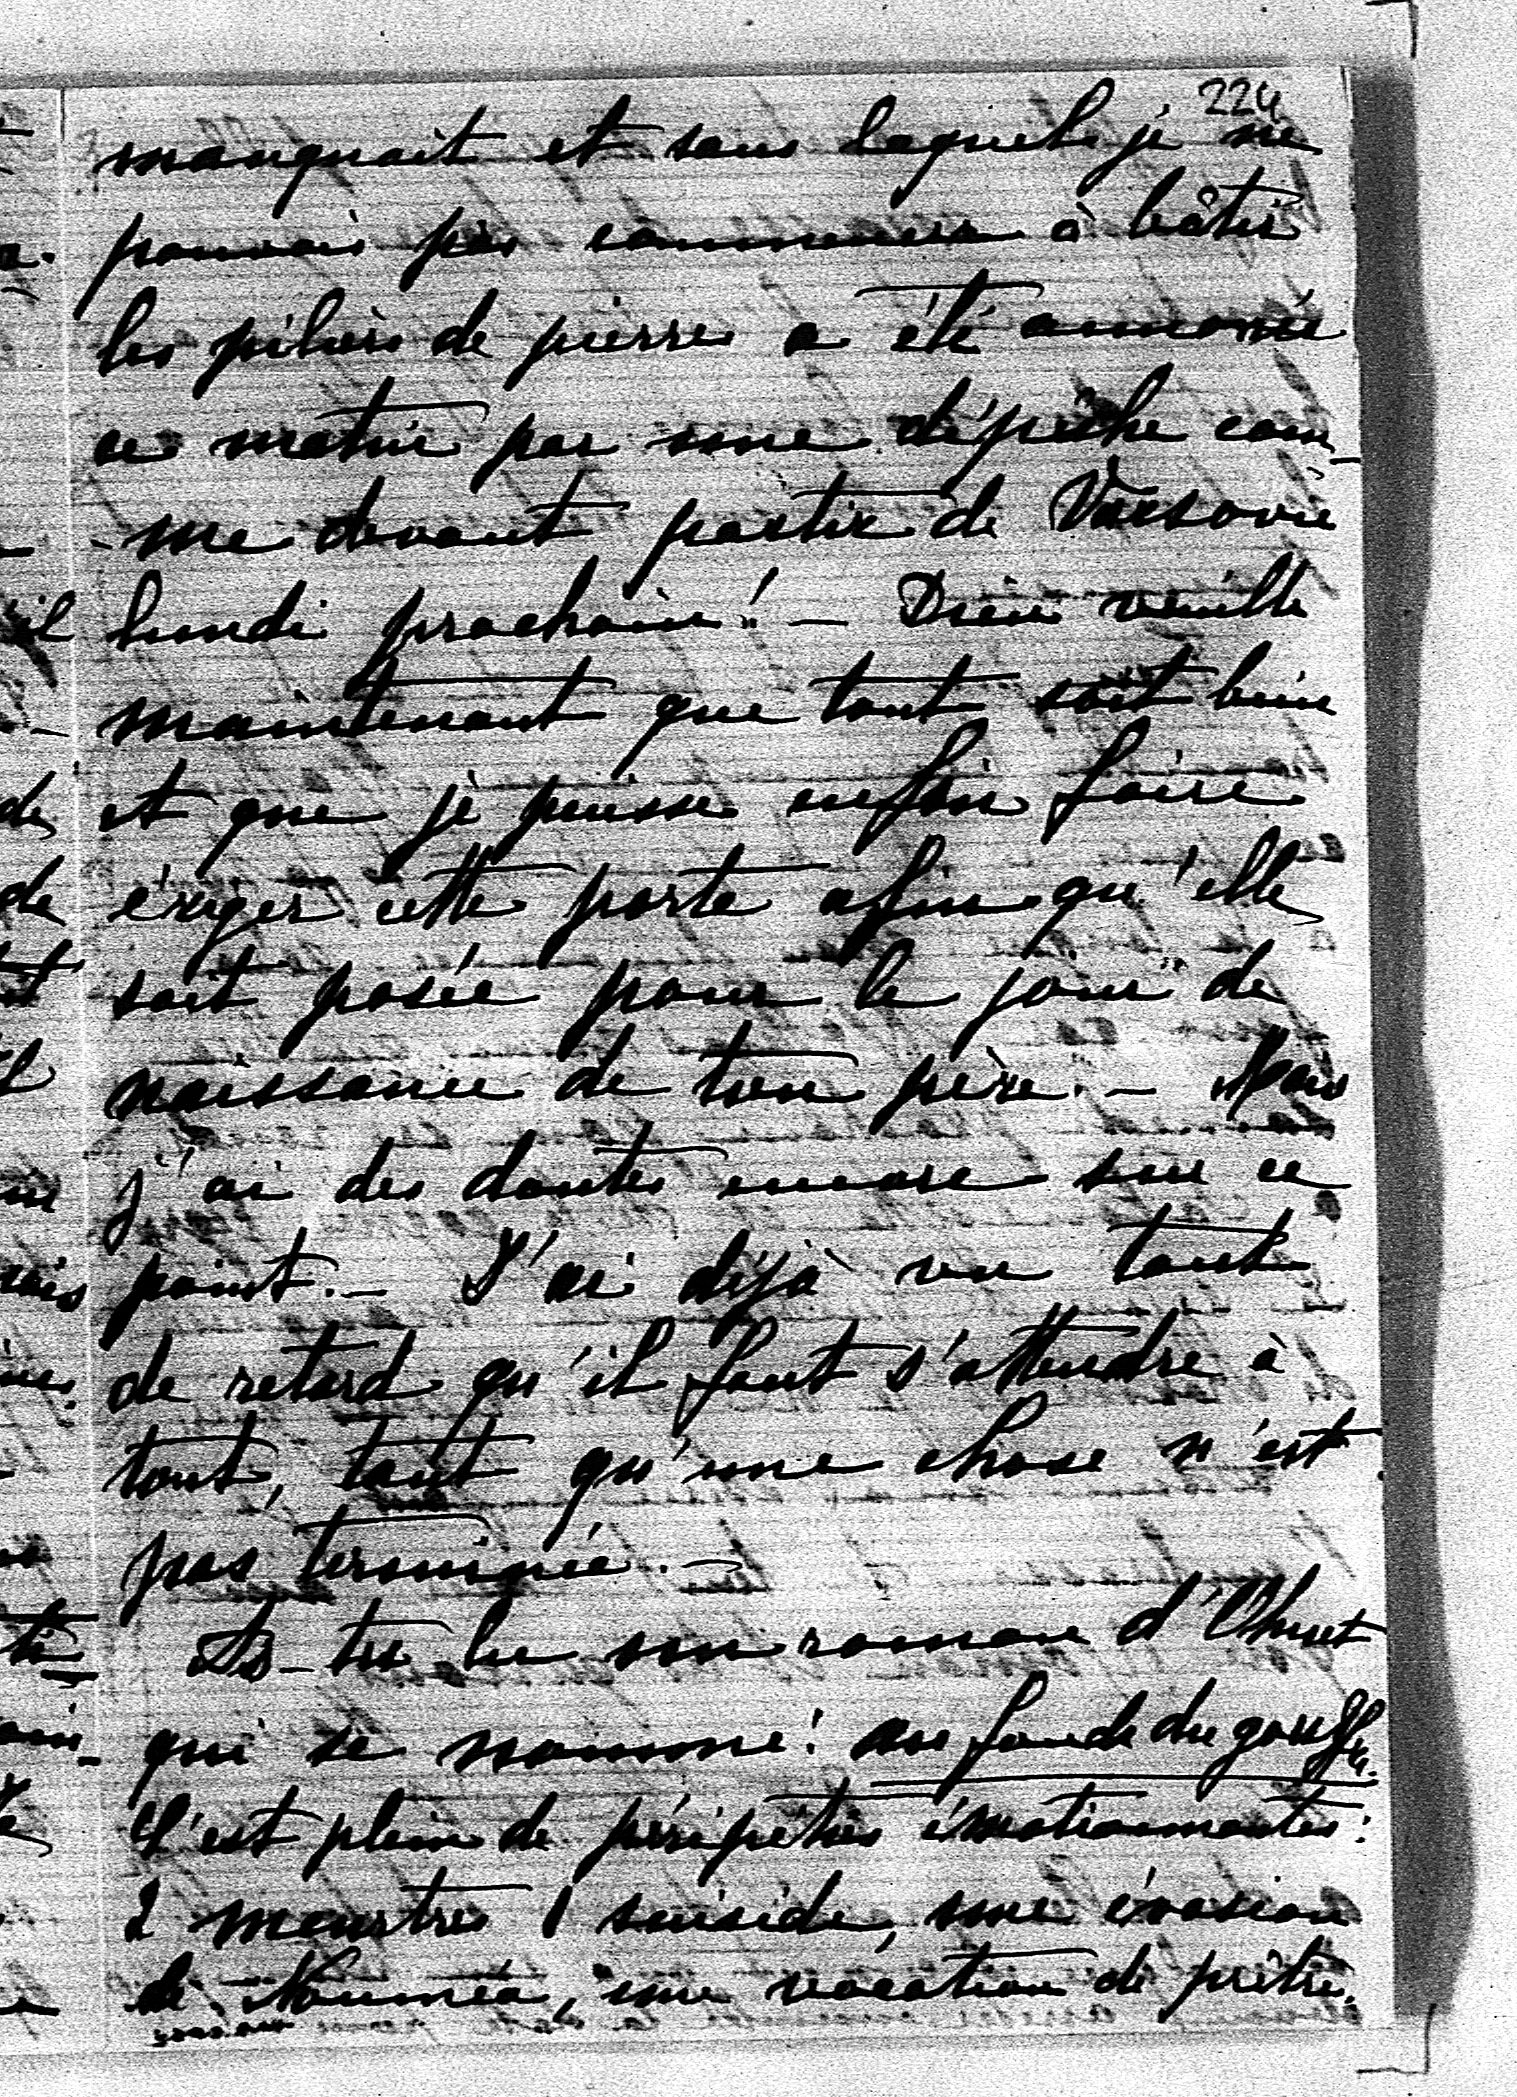 224
manquait et sans laquelle je ne
pouvais pas commencer à bâtir
les piliers de pierre a été annoncée
ce matin par une dépêche com-
me devant partir de Varsovie
lundi prochain! — Dieu veuille
maintenant que tout soit bien
et que je puisse enfin faire
ériger cette porte afin qu'elle
soit posée pour le jour de
naissance de ton père. — Mais
j'ai des doutes encore sur ce
point. — J'ai déjà vu tant
de retard qu'il faut s'attendre à
tout, tant qu'une chose n'est
pas terminée. —
As-tu lu un roman d'Ohnet
qui se nomme: au fond du gouffre.
C'est plein de péripéties émotionnantes:
2 meurtres 1 suiside, une évasion
de Nouméa, une vocation de prêtre.